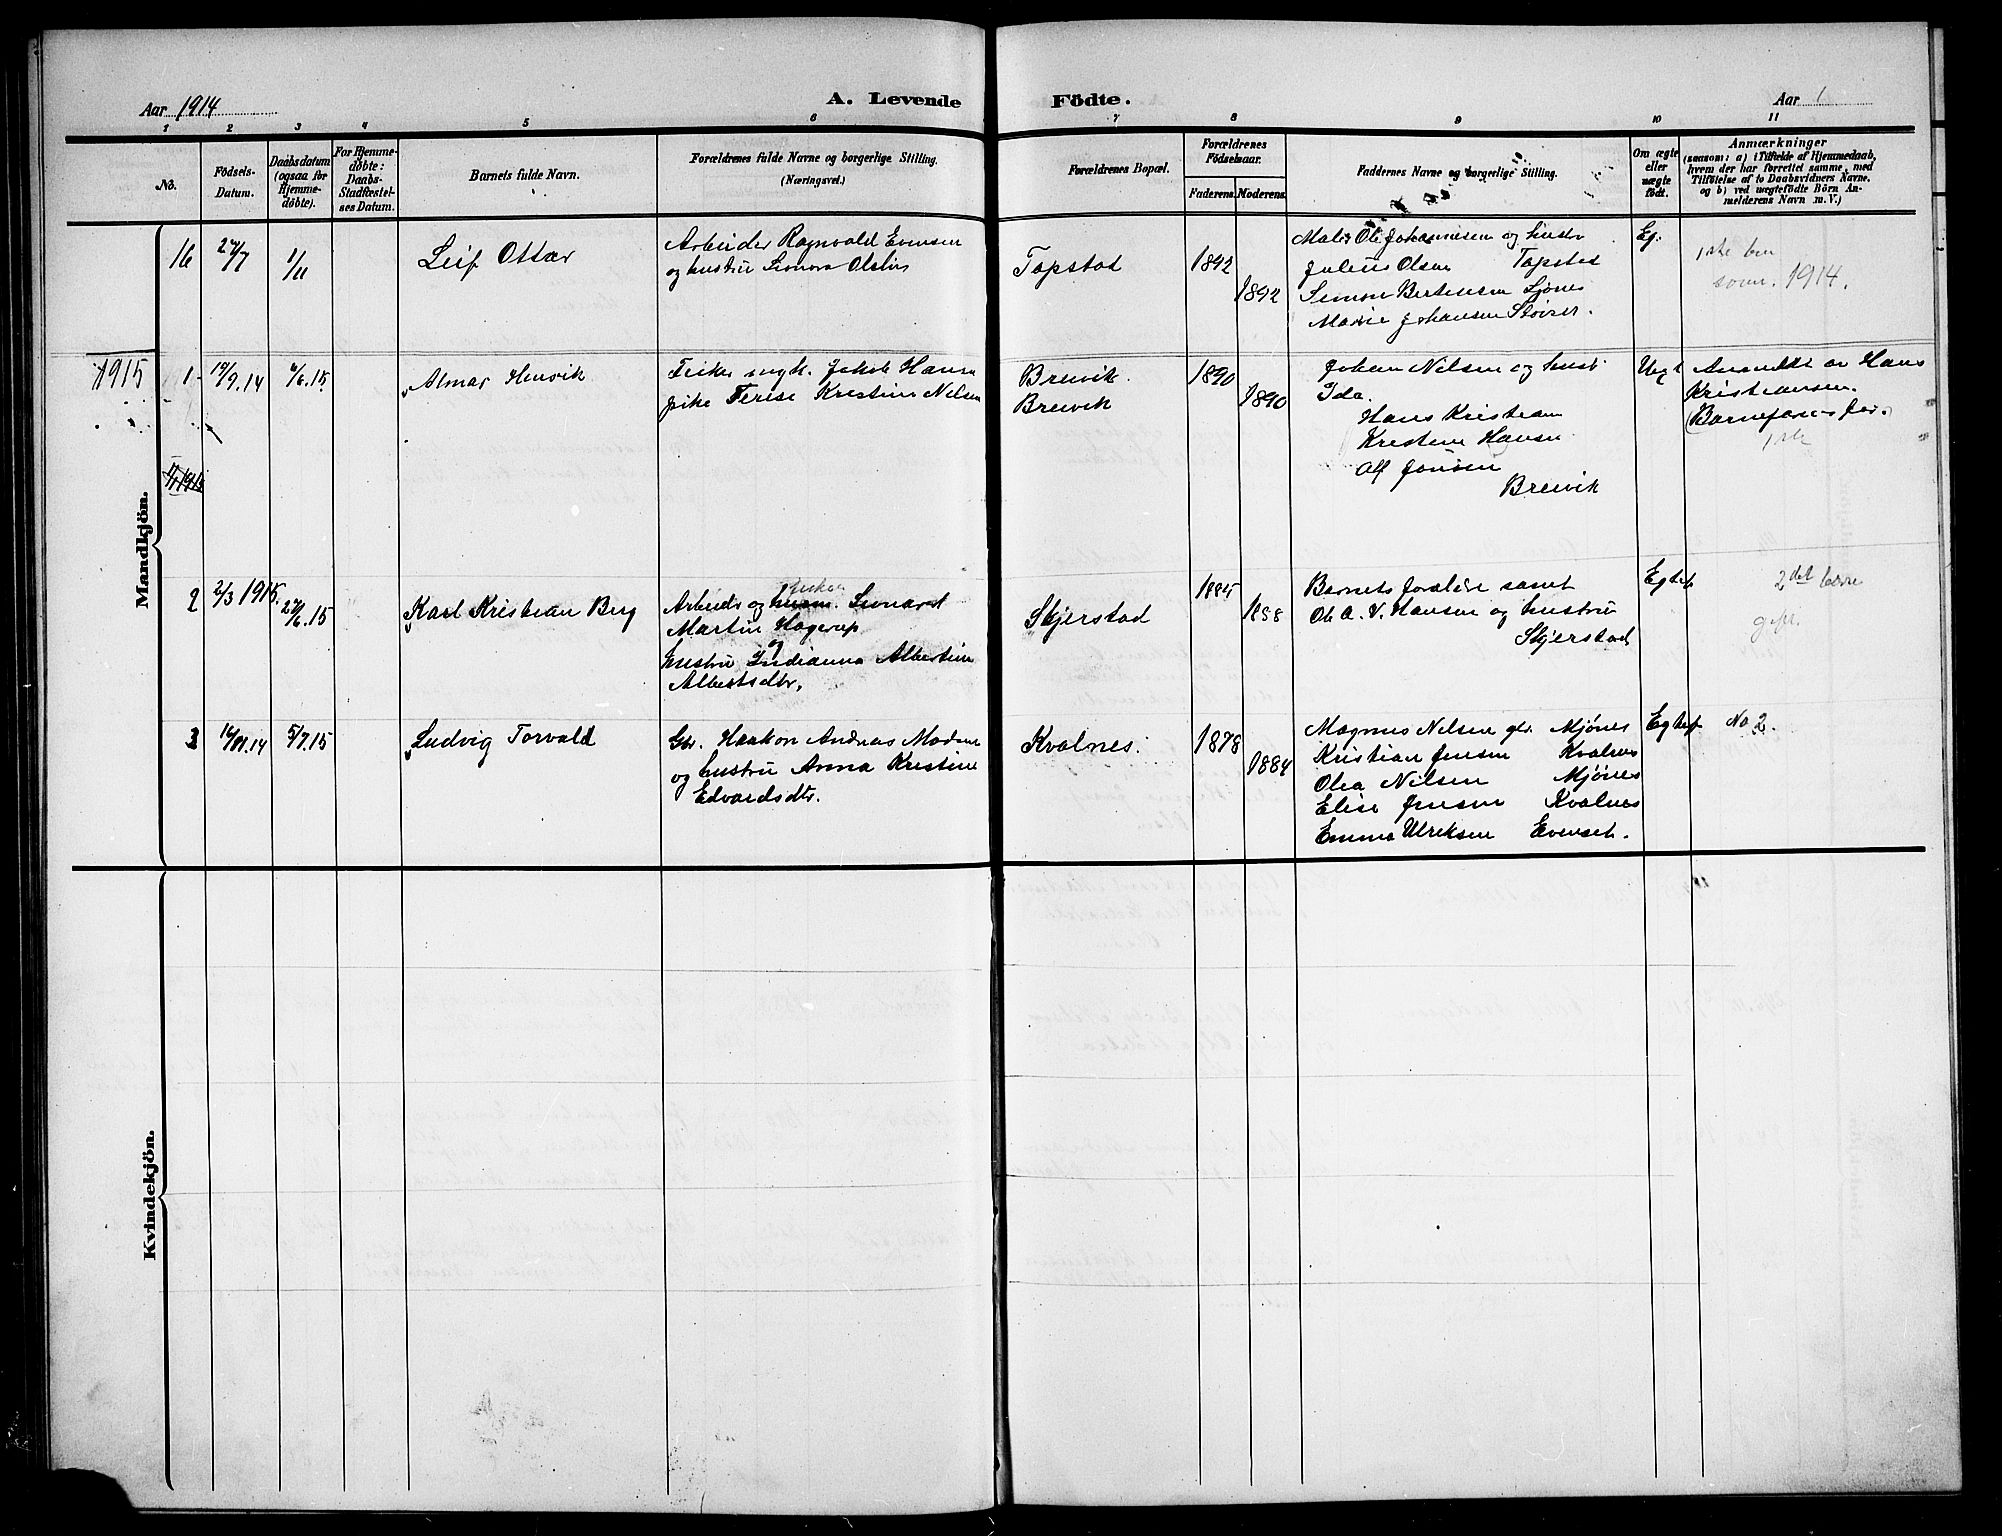 Aar 1914
A. Levende
Födte.
Aar 1
1 2 3 4 5 6 7 8 9 10 11
No.
Fødsels-
Datum.
Daabsdatum
(ogsaa for
Hjemme-
døbte).
For Hjemme-
døbte:
Daabs-
Stadfæstel-
ses Datum.
Barnets fulde Navn.
Forældrenes fulde Navne og borgerlige Stilling.
(Næringsvei.)
Forældrenes Bopæl.
Forældrenes
Fødselsaar.
Faderens. Moderens.
Faddernes Navne og borgerlige Stilling.
Om ægte
eller
uægte
født.
Anmærkninger
(saasom: a) i Tilfælde af Hjemmedaab,
hvem der har forrettet samme, med
Tilføielse af to Daabsvidners Navne.
og b) ved uægtefødte Börn An-
melderens Navn m. V.)
Mandkjön.
16
27/7
1/11
Leif Ottar
Arbeider Ragnvald Evensen
og hustru Leonora Olsdtr
Topstad
1892
1892
Ole Johannesen og hustr
Julius Olsen Topstad
Simon Bertensen Ljønes
Marie Johansen Støvset.
Eg.
1ste
1914.
1915
1
19/9.14
4/6.15
Almar Henrik
Fisker ungk. Jakob Hansen
pike Terese Kristine Nilsen
Breivik
Breivik
1890
1890
Johan Nilsen og hust
Ida.
Hans Kristian
Kristine Hansen
Alf Jensen
Breivik
Uegt
Anmeldt av Hans
Kristiansen.
(Barnefarens far.
1ste
2
2/3 1915.
27/6.15
Karl Kristian Berg
fisker
Arbeidr og Leonard
Martin Hagerup
og
hustru Indianna Albertine
Albertsdtr.
Skjerstad
1885
1888
Barnets forældre samt
Ole A. V. Hansen og hustru
Skjerstad
Egtef
2det barn
3
14/11.14
5/7.15
Ludvig Torvald
Gbr. Haakon Andreas Madsen
og hustru Anna Kristine
Edvardsdtr.
Kvalnes.
1878
1884
Magnus Nilsen gbr. Mjønes
Kristian Jensen Kvalnes
Olea Nilsen Mjønes
Elise Jensen Kvalnes
Emma Ulriksen Evenset.
Egtef
No 2.
Kvindekjön.